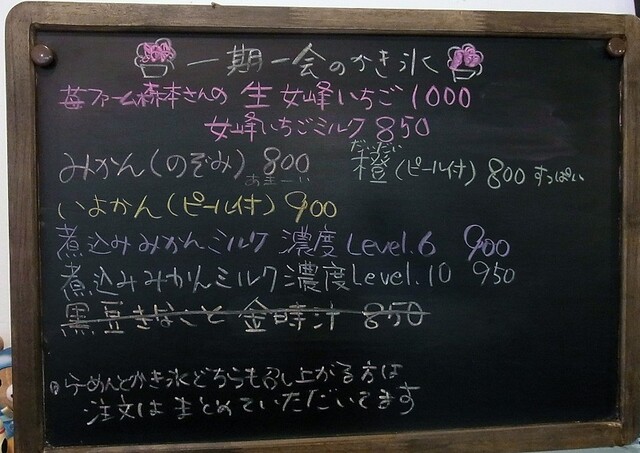 一期一会のかき氷
苺ファーム森本さんの 生 女峰いちご 1000
女峰いちごミルク 850
みかん(のぞみ) 800 あまーい
橙(ピール付) 800 すっぱい
だいだい
いよかん(ピール付) 900
煮込みみかんミルク 濃度Level.6 900
煮込みみかんミルク 濃度Level.10 950
黒豆きなこと 金時汁 850
らーめんとかき氷どちらも召し上がる方は
注文は まとめていただいてます